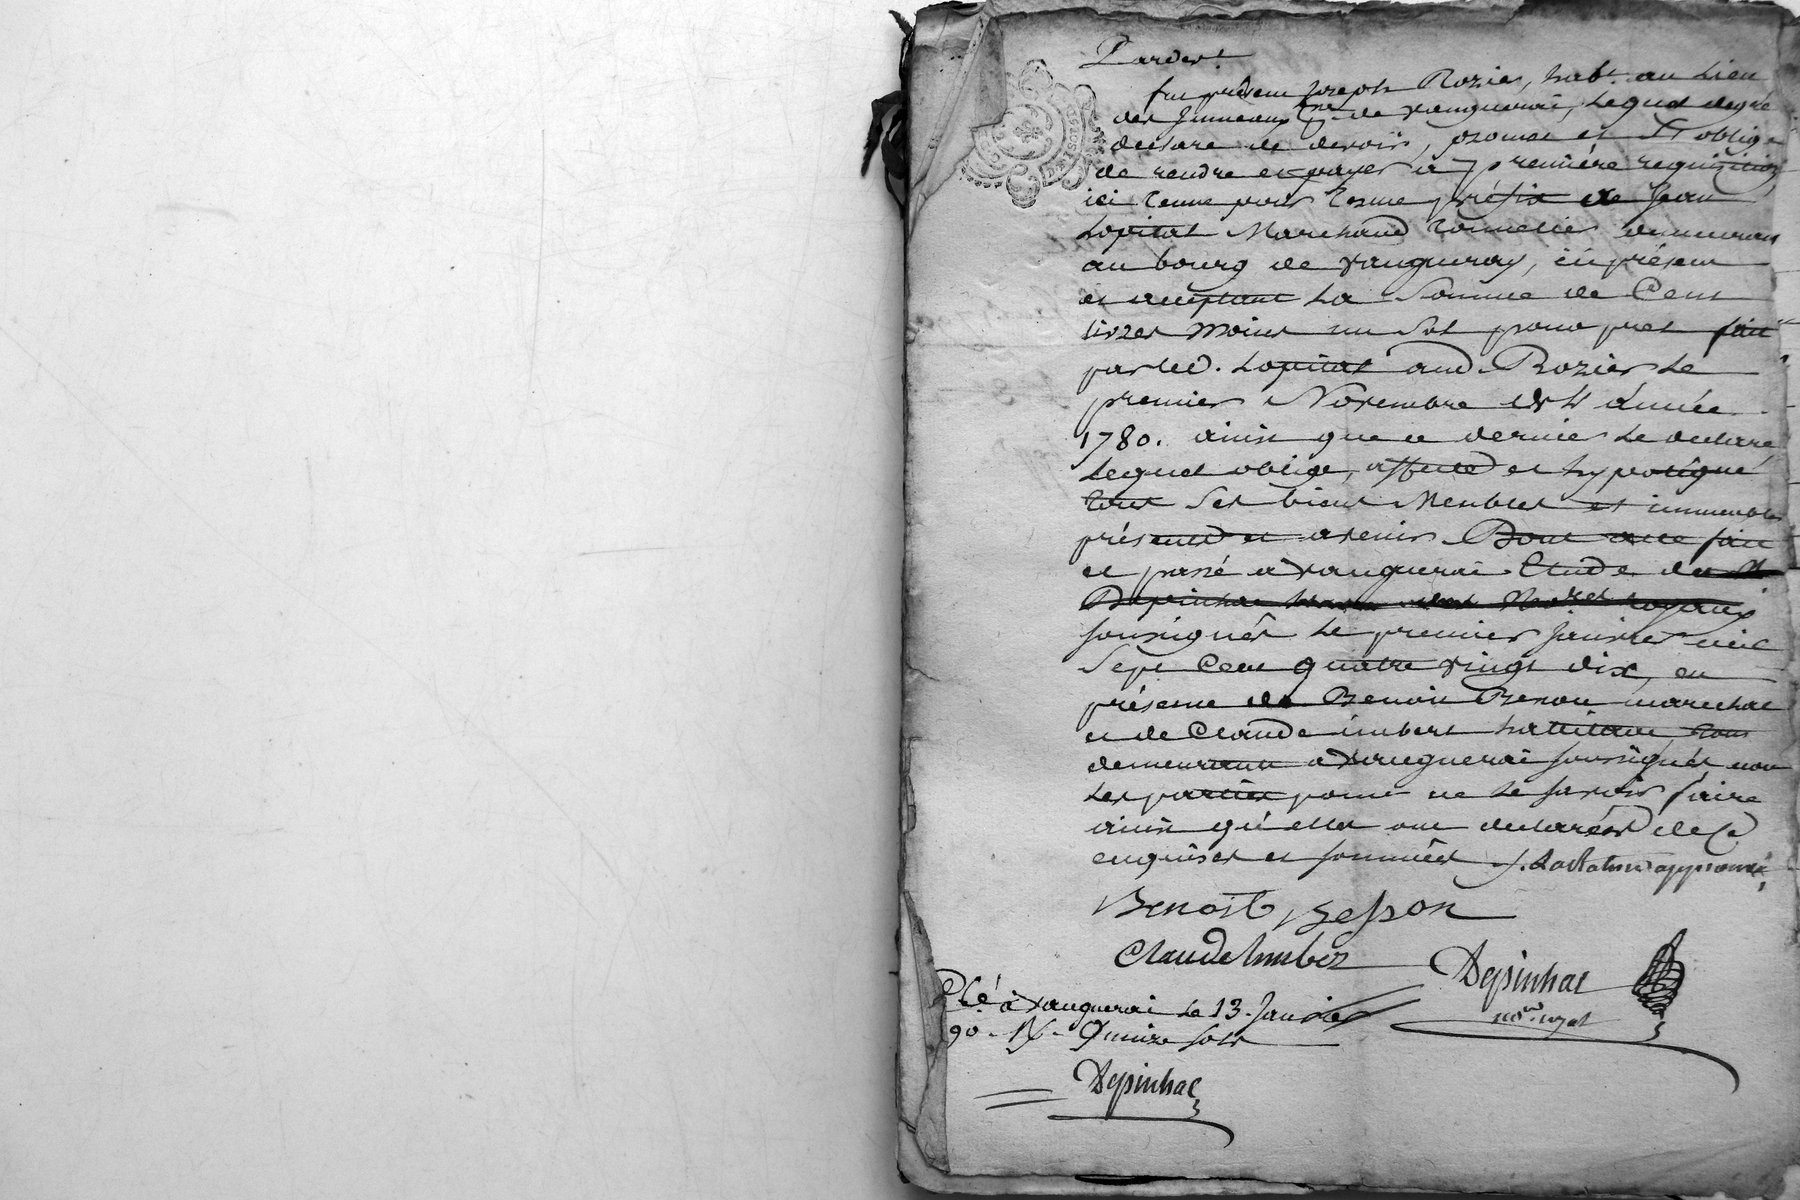 Pardev.t
fut présent Joseph Rozier, hab.t au Lieu
des Jumeaux p.sse de vaugnerai, Lequel de gré
declare de devoir, promet et S'oblige
de rendre et payer à première requisition
ici tenue pour terme préfix de Jean
Lopital Marchand tonnelier demeurant
au bourg de vaugneray, ici présent
et acceptant La Somme de Cent
livres moins un Sol pour pret fait
par led. Lopital aud. Rozier Le
premier Novembre de L'année
1780. ainsi que ce dernier Le declare
Lequel oblige, affecte et hypotéque
tous Ses biens Meubles et immeubles
présents et avenir. Dont acte fait
et passé à vaugnerai Etude de M.
Depinhac Not.res royaux
soussignés Le premier janvier mil
Sept Cent quatre vingt dix, en
présence de Benoit Besson marechal
et de Claude imbert habitant, tous
demeurant à vaugnerai soussignés non
Les parties pour ne Le savoir faire
ainsi qu'elles ont declarées de ce
enquises et sommées ./. approuvé
Benoit Besson
Claude Imber
Depinhac
no.re royal
C.lé à vaugnerai Le 13. Janvier
90. R. Quinze sols
Depinhac